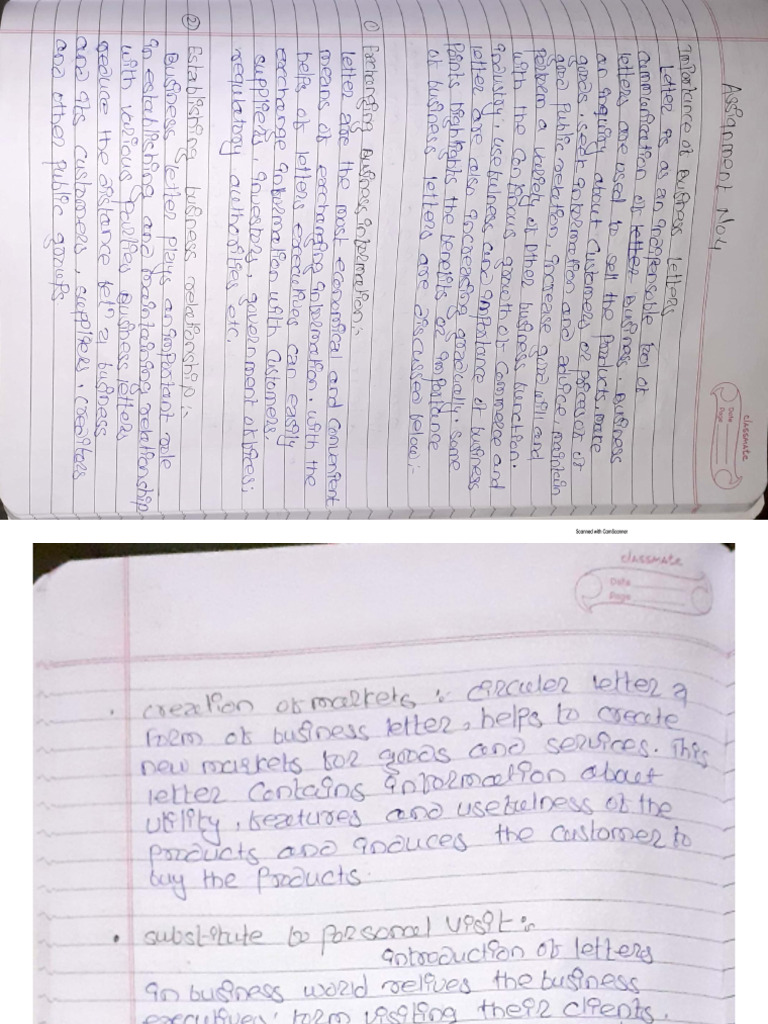 Assignment No 4
classmate
Date
Page
Importance of Business letters
Letter is as an indispensable tool of
communication of letter Business. Business
letters are used to sell the Products, make
an inquiry about customers or prices of
goods, seek information and advice, maintain
good public relation, increase good will and
perform a variety of other business function.
with the continous growth of commerce and
industry, usefulness and importance of business
letter are also increasing gradually. Some
Points Highlights the benefits or importance
of business letters are discussed below :-
1) Exchanging Business information :-
letter are the most economical and convenient
means of exchanging information. with the
help of letters executives can easily
exchange information with customers,
suppliers, investors, government offices,
regulatory authorities etc.
2) Establishing business relationship :-
Business letter plays an important role
in establishing and maintaining relationship
with various parties Business letters
reduce the distance bet'n a business
and its customers, suppliers, creditors
and other public groups.
Scanned with CamScanner
classmate
Date
Page
• creation of markets :- circuler letter a
form of business letter, helps to create
new markets for goods and services. This
letter contains information about
utility, features and usefulness of the
products and induces the customer to
buy the products.
• substitute to personal visit :-
introduction of letters
in business world relives the business
executives form visiting their clients.